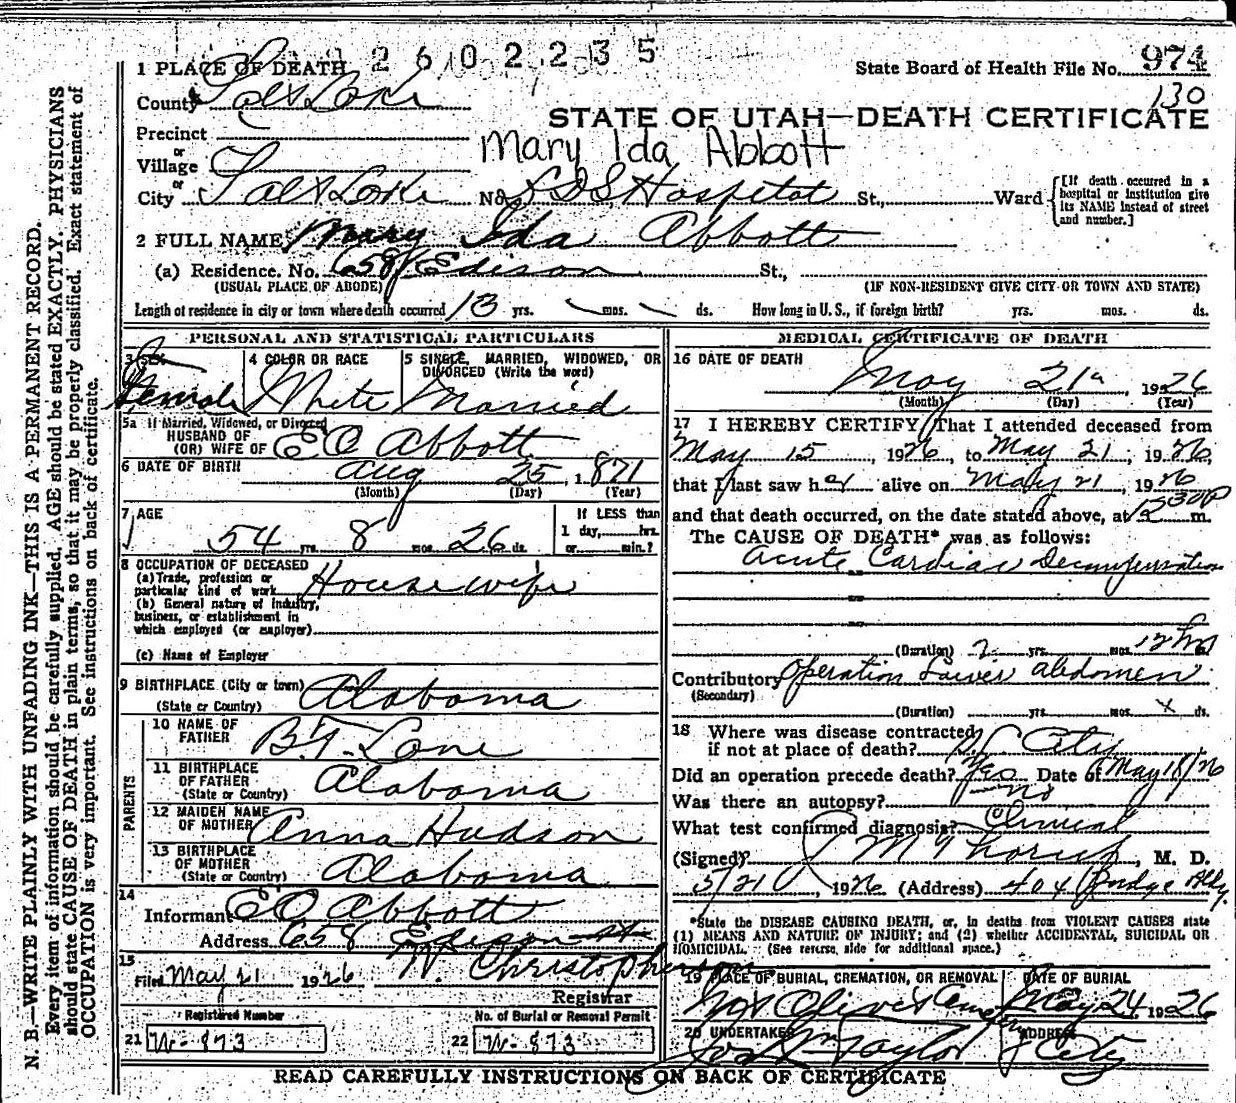 2602235
1 PLACE OF DEATH
State Board of Health File No. 974
130
County Salt Lake
STATE OF UTAH—DEATH CERTIFICATE
Precinct
Mary Ida Abbott
or
Village
or
City Salt Lake No. LDS Hospital St., Ward
[If death occurred in a hospital or institution give its NAME instead of street and number.]
2 FULL NAME Mary Ida Abbott
(a) Residence. No. 658 Edison St.,
(USUAL PLACE OF ABODE) (IF NON-RESIDENT GIVE CITY OR TOWN AND STATE)
Length of residence in city or town where death occurred 13 yrs. mos. ds. How long in U. S., if foreign birth? yrs. mos. ds.
PERSONAL AND STATISTICAL PARTICULARS
3 SEX 4 COLOR OR RACE 5 SINGLE, MARRIED, WIDOWED, OR
DIVORCED (Write the word)
Female White Married
5a If Married, Widowed, or Divorced
HUSBAND OF
(OR) WIFE OF E O Abbott
6 DATE OF BIRTH Aug 25, 1871
(Month) (Day) (Year)
7 AGE If LESS than
1 day, hrs.
54 yrs. 8 mos. 26 ds. or min.?
8 OCCUPATION OF DECEASED
(a) Trade, profession or
particular kind of work Housewife
(b) General nature of Industry,
business, or establishment in
which employed (or employer)
(c) Name of Employer
9 BIRTHPLACE (City or town)
(State or Country) Alabama
PARENTS
10 NAME OF
FATHER B.F. Lane
11 BIRTHPLACE
OF FATHER
(State or Country) Alabama
12 MAIDEN NAME
OF MOTHER Anna Hudson
13 BIRTHPLACE
OF MOTHER
(State or Country) Alabama
14
Informant E O Abbott
Address 658 Edison St
15
Filed May 21 1926 W Christopherson
Registrar
Registered Number No. of Burial or Removal Permit
21 W-873 22 W-873
MEDICAL CERTIFICATE OF DEATH
16 DATE OF DEATH
May 21, 1926
(Month) (Day) (Year)
17 I HEREBY CERTIFY, That I attended deceased from
May 15, 1926, to May 21, 1926,
that I last saw her alive on May 21, 1926
and that death occurred, on the date stated above, at 12 30 P m.
The CAUSE OF DEATH* was as follows:
Acute Cardiac Decompensation
(Duration) yrs. mos. 12 hrs
Contributory Operation Lower abdomen
(Secondary)
(Duration) yrs. mos. ds.
18 Where was disease contracted
if not at place of death? S. L. City
Did an operation precede death? Yes Date of May 18/26
Was there an autopsy? No
What test confirmed diagnosis? Clinical
(Signed), M. D.
5/21, 1926 (Address) 404 Judge Bldg.
*State the DISEASE CAUSING DEATH, or, in deaths from VIOLENT CAUSES state
(1) MEANS AND NATURE OF INJURY; and (2) whether ACCIDENTAL, SUICIDAL OR
HOMICIDAL. (See reverse side for additional space.)
19 PLACE OF BURIAL, CREMATION, OR REMOVAL DATE OF BURIAL
Mt Olivet Cemetery May 24, 1926
20 UNDERTAKER ADDRESS
Jos Wm Taylor City
READ CAREFULLY INSTRUCTIONS ON BACK OF CERTIFICATE
N. B.—WRITE PLAINLY WITH UNFADING INK—THIS IS A PERMANENT RECORD.
Every item of information should be carefully supplied. AGE should be stated EXACTLY. PHYSICIANS
should state CAUSE OF DEATH in plain terms, so that it may be properly classified. Exact statement of
OCCUPATION is very important. See instructions on back of certificate.